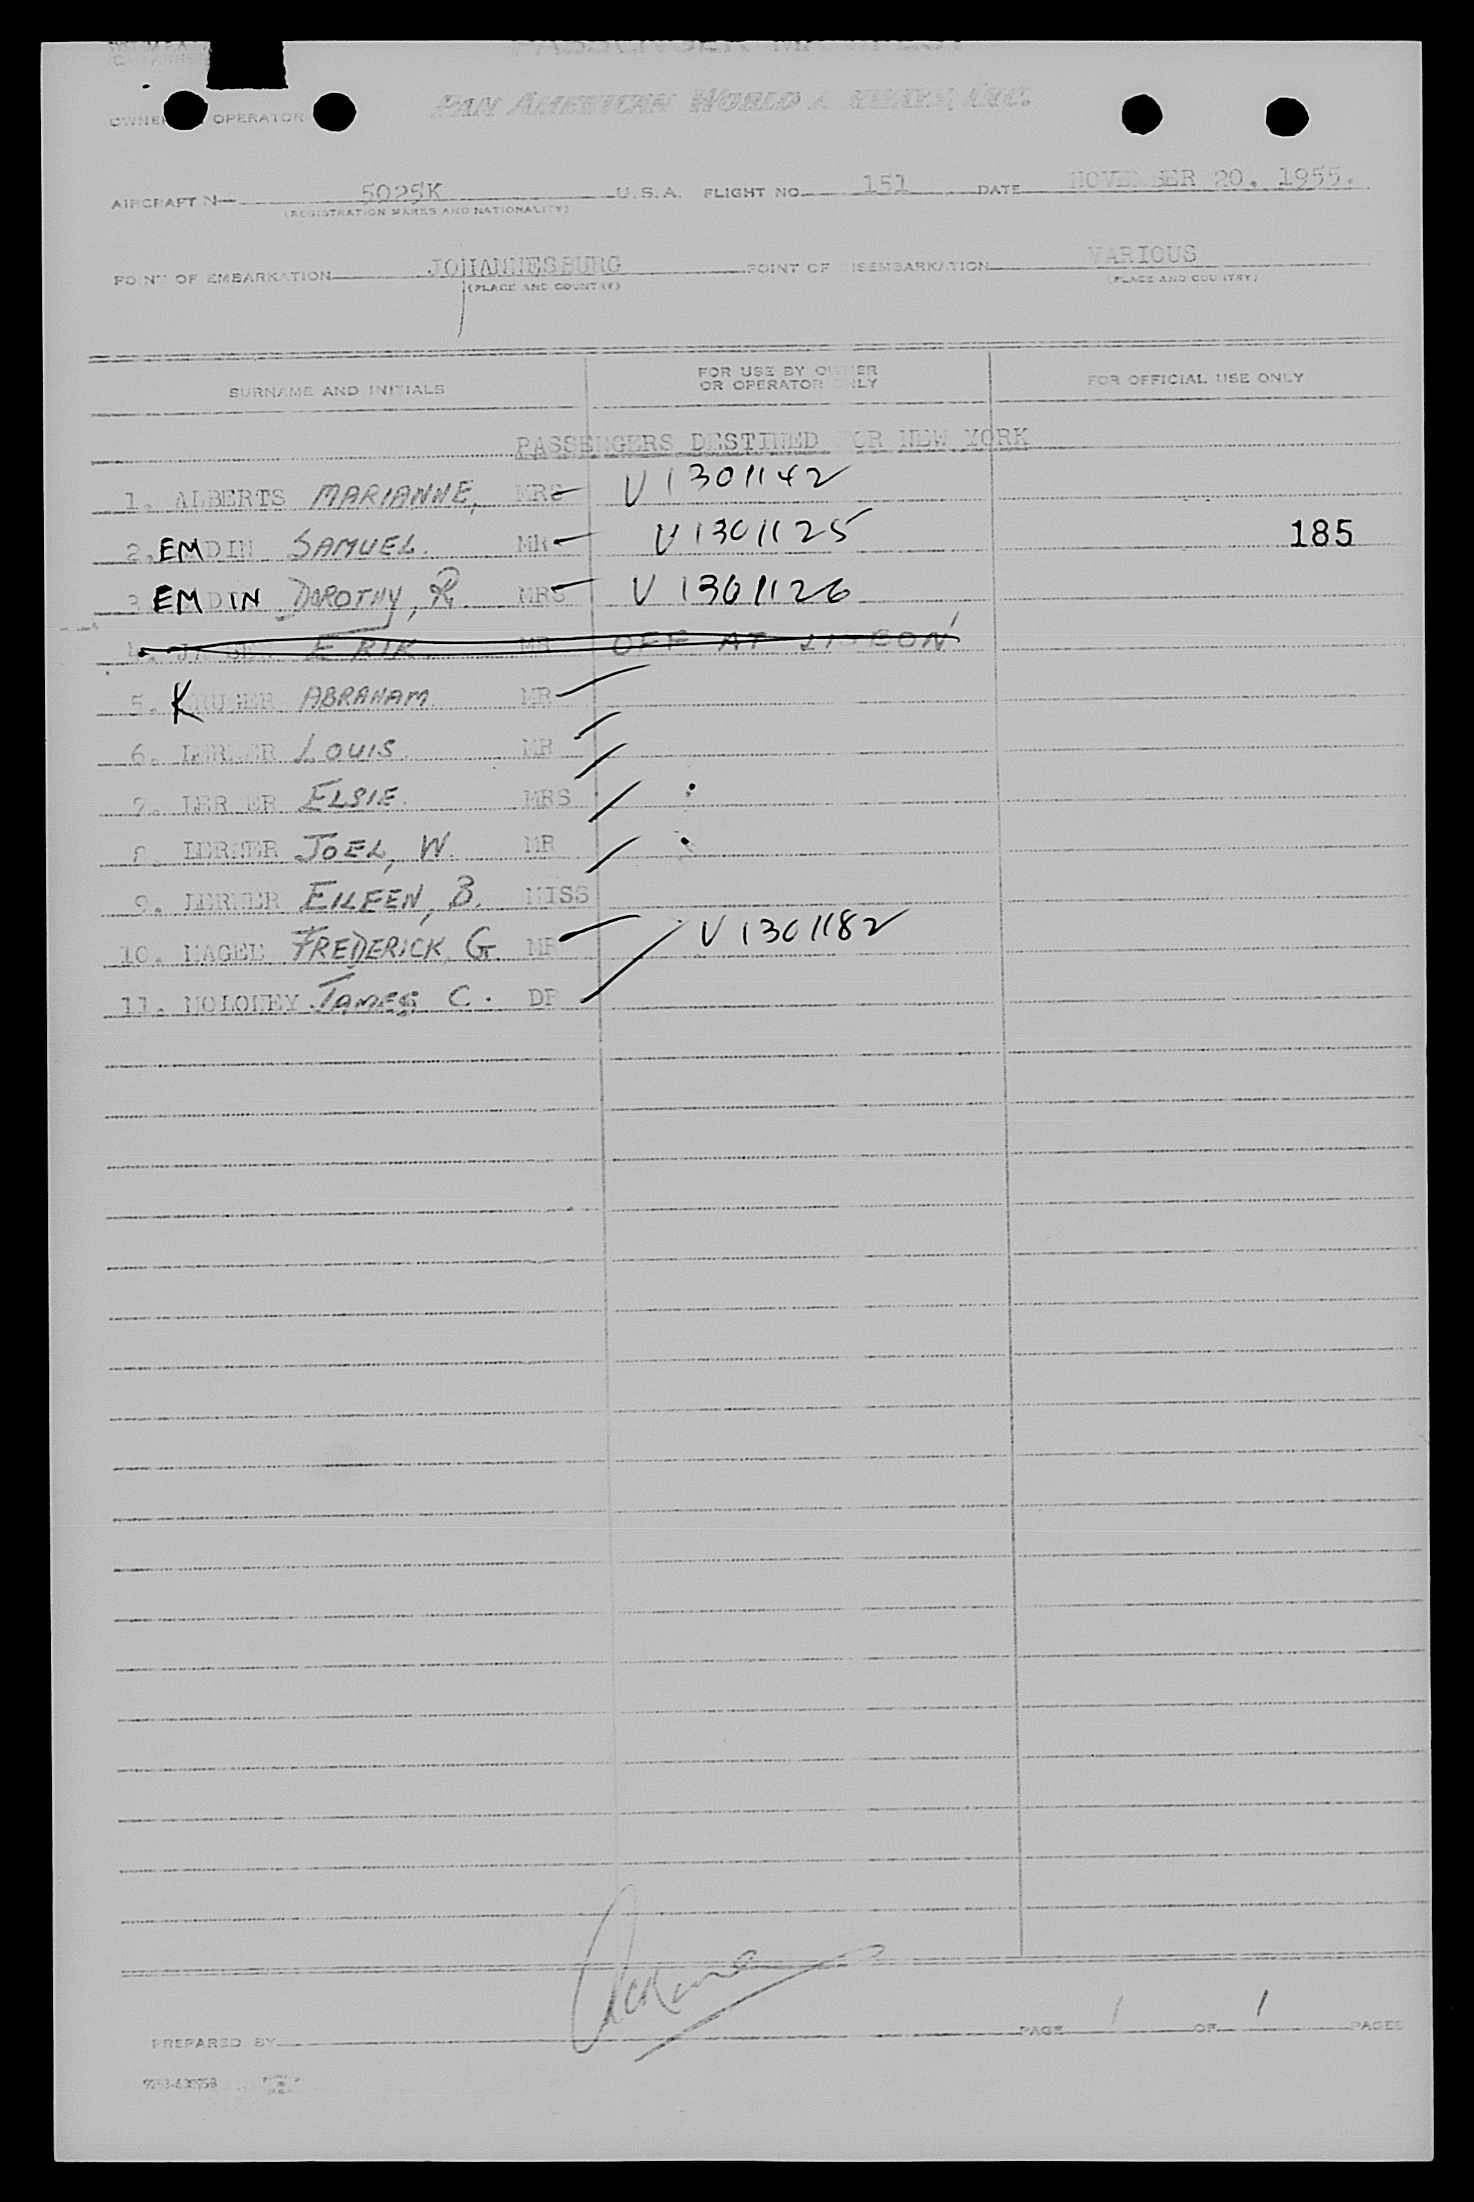 PASSENGER MANIFEST
PAN AMERICAN WORLD AIRWAYS, INC.
OWNER OR OPERATOR
AIRCRAFT N— 5025K U.S.A. FLIGHT NO. 151 DATE NOVEMBER 20. 1955.
(REGISTRATION MARKS AND NATIONALITY)
POINT OF EMBARKATION JOHANNESBURG POINT OF DISEMBARKATION VARIOUS
(PLACE AND COUNTRY) (PLACE AND COUNTRY)
SURNAME AND INITIALS FOR USE BY OWNER OR OPERATOR ONLY FOR OFFICIAL USE ONLY
PASSENGERS DESTINED FOR NEW YORK
1. ALBERTS MARIANNE, MRS V1301142
2. EMDIN SAMUEL. MR V1301125 185
3 EMDIN DOROTHY, R. MRS V1301126
4. ERIK. MR OFF AT LISBON
5. KRUGER ABRAHAM MR
6. LERNER LOUIS. MR
7. LERNER ELSIE. MRS
8. LERNER JOEL, W. MR
9. LERNER EILEEN, B. MISS
10. MAGEE FREDERICK, G. MR V1301182
11. MOLONEY JAMES C. DR
PREPARED BY PAGE 1 OF 1 PAGES